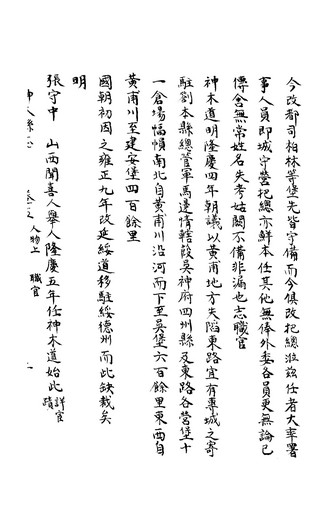 今改都司柏林等堡先皆守備而今俱改把總涖茲任者大率署
事人員即城守營把總亦鮮本任其他無俸外委各員更無論已
傳舍無常姓名失考姑闕不備非漏也志職官
神木道明隆慶四年朝議以黃甫地方失陷東路宜有專城之寄
駐劄本縣總管軍馬邊情轄葭吳神府四州縣及東路各營堡十
一倉場幅幀南北自黃甫川沿河而下至吳堡六百餘里東西自
黃甫川至建安堡四百餘里
國朝初因之雍正九年改延綏道移駐綏德州而此缺裁矣
明
張守中 山西聞喜人舉人隆慶五年任神木道始此詳宦蹟
神木縣志 卷之 人物上 職官